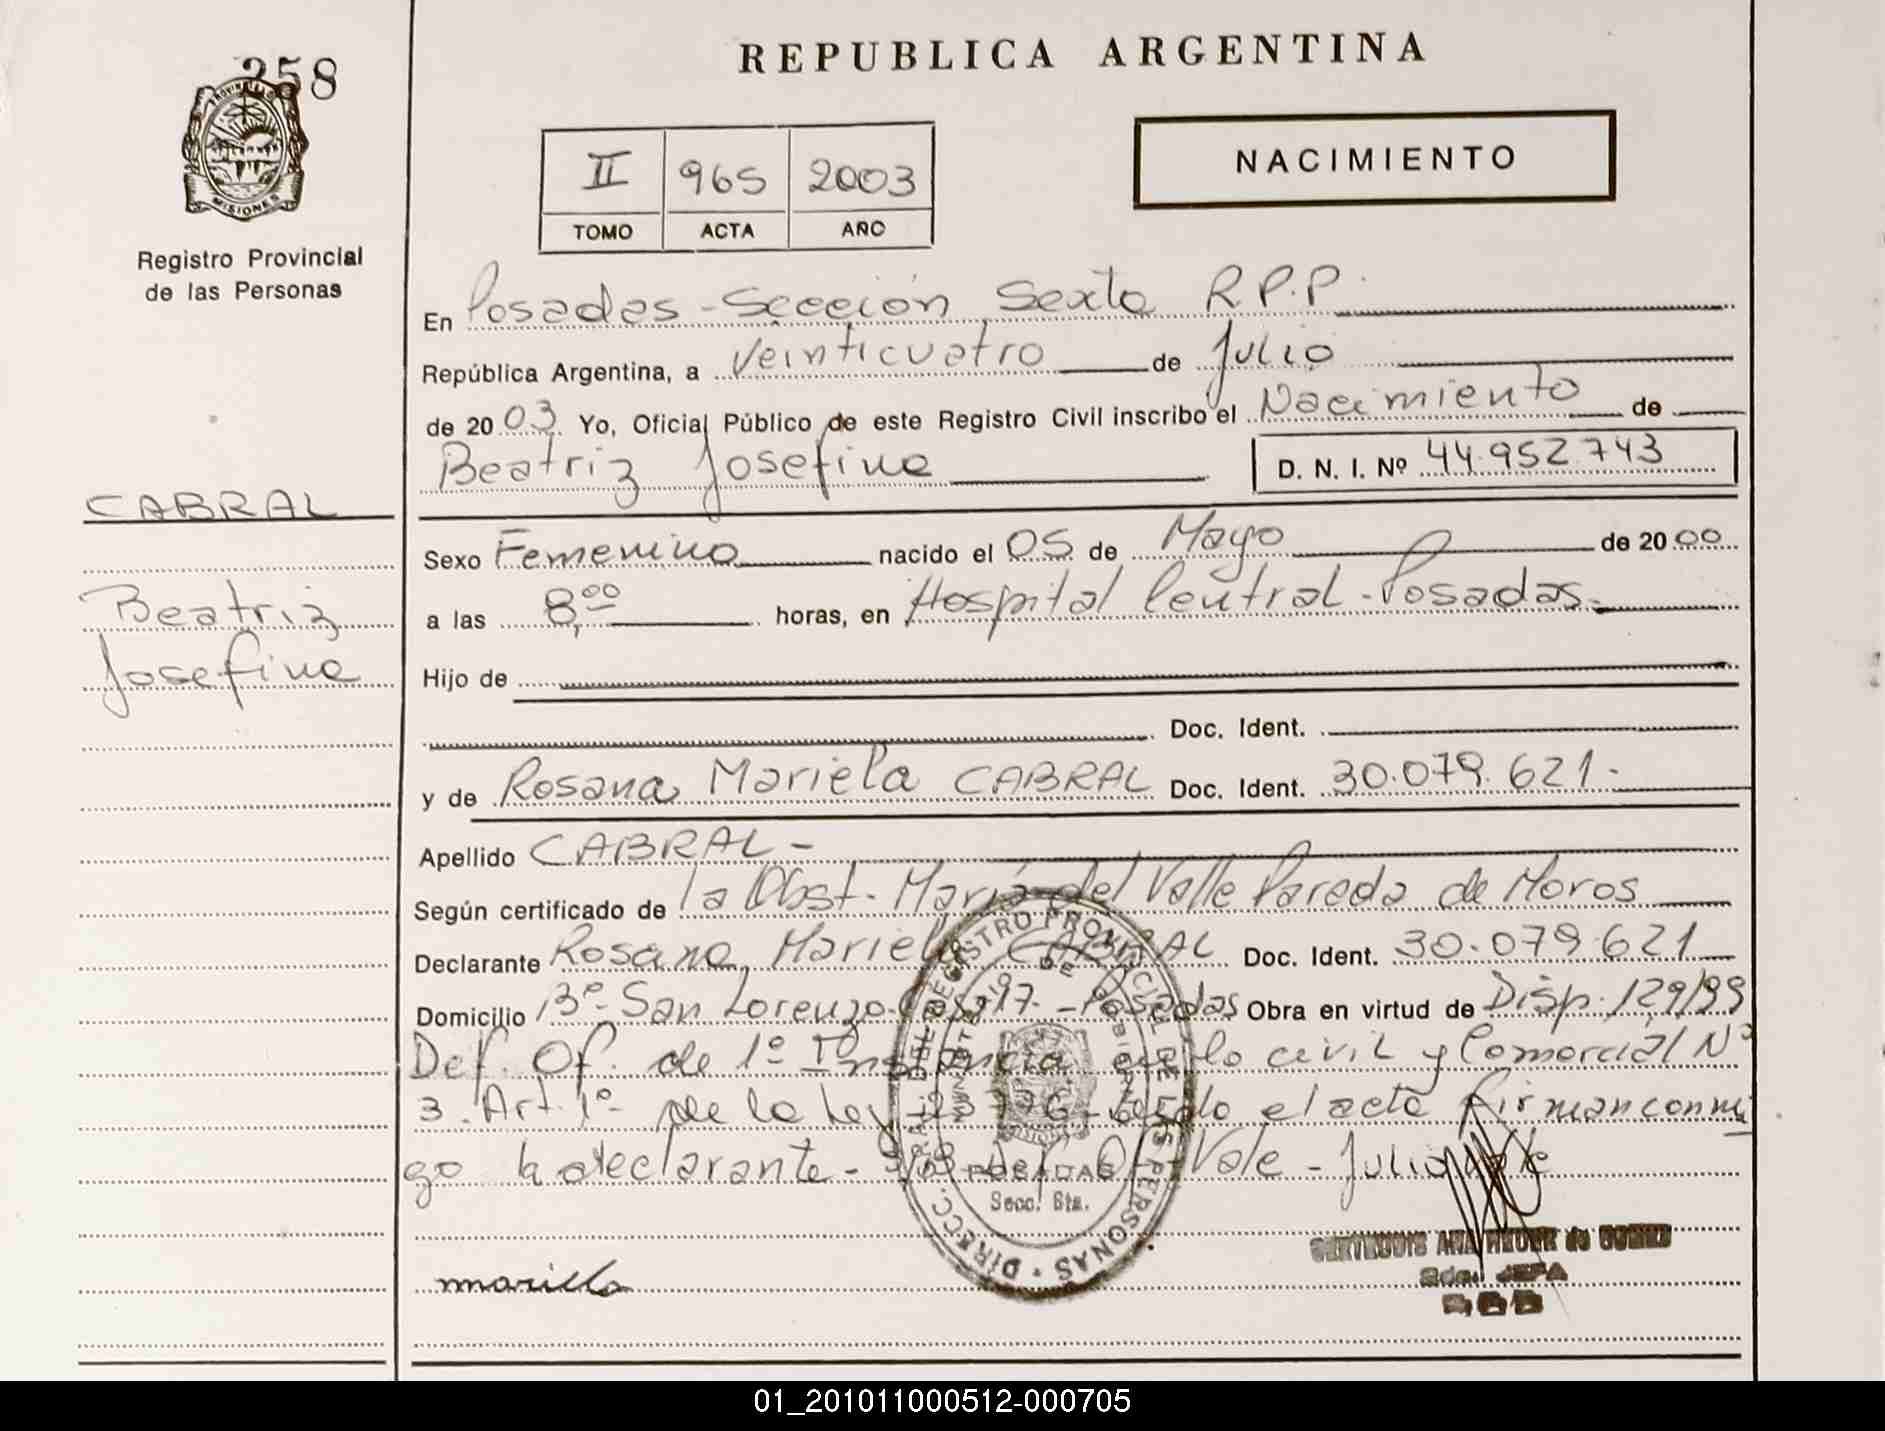 258
PROVINCIA DE
MISIONES
Registro Provincial
de las Personas
REPUBLICA ARGENTINA
II 965 2003
TOMO ACTA AÑO
NACIMIENTO
En Posadas - Sección Sexta R.P.P.
República Argentina, a veinticuatro de Julio
de 2003. Yo, Oficial Público de este Registro Civil inscribo el Nacimiento de
Beatriz Josefina D. N. I. Nº 44.952.743
CABRAL
Beatriz
Josefina
Sexo Femenino nacido el 05 de Mayo de 2000
a las 8,00 horas, en Hospital Central - Posadas.
Hijo de
Doc. Ident.
y de Rosana Mariela CABRAL Doc. Ident. 30.079.621.-
Apellido CABRAL -
Según certificado de la Obst. María del Valle Pareda de Moros
Declarante Rosana Mariela CABRAL Doc. Ident. 30.079.621
Domicilio Bº San Lorenzo - Casa 97 - Posadas Obra en virtud de Disp. 129/99
Def. Of. de 1º Instancia en lo civil y Comercial Nº
3. Art. 1º de la Ley el acta firman conmi
go la declarante - Vale - Julio
DIRECC. GRAL. DEL REGISTRO PROVINCIAL DE LAS PERSONAS
MINISTERIO DE GOBIERNO
POSADAS
Secc. 6ta.
mariela
JEFA
01_201011000512-000705